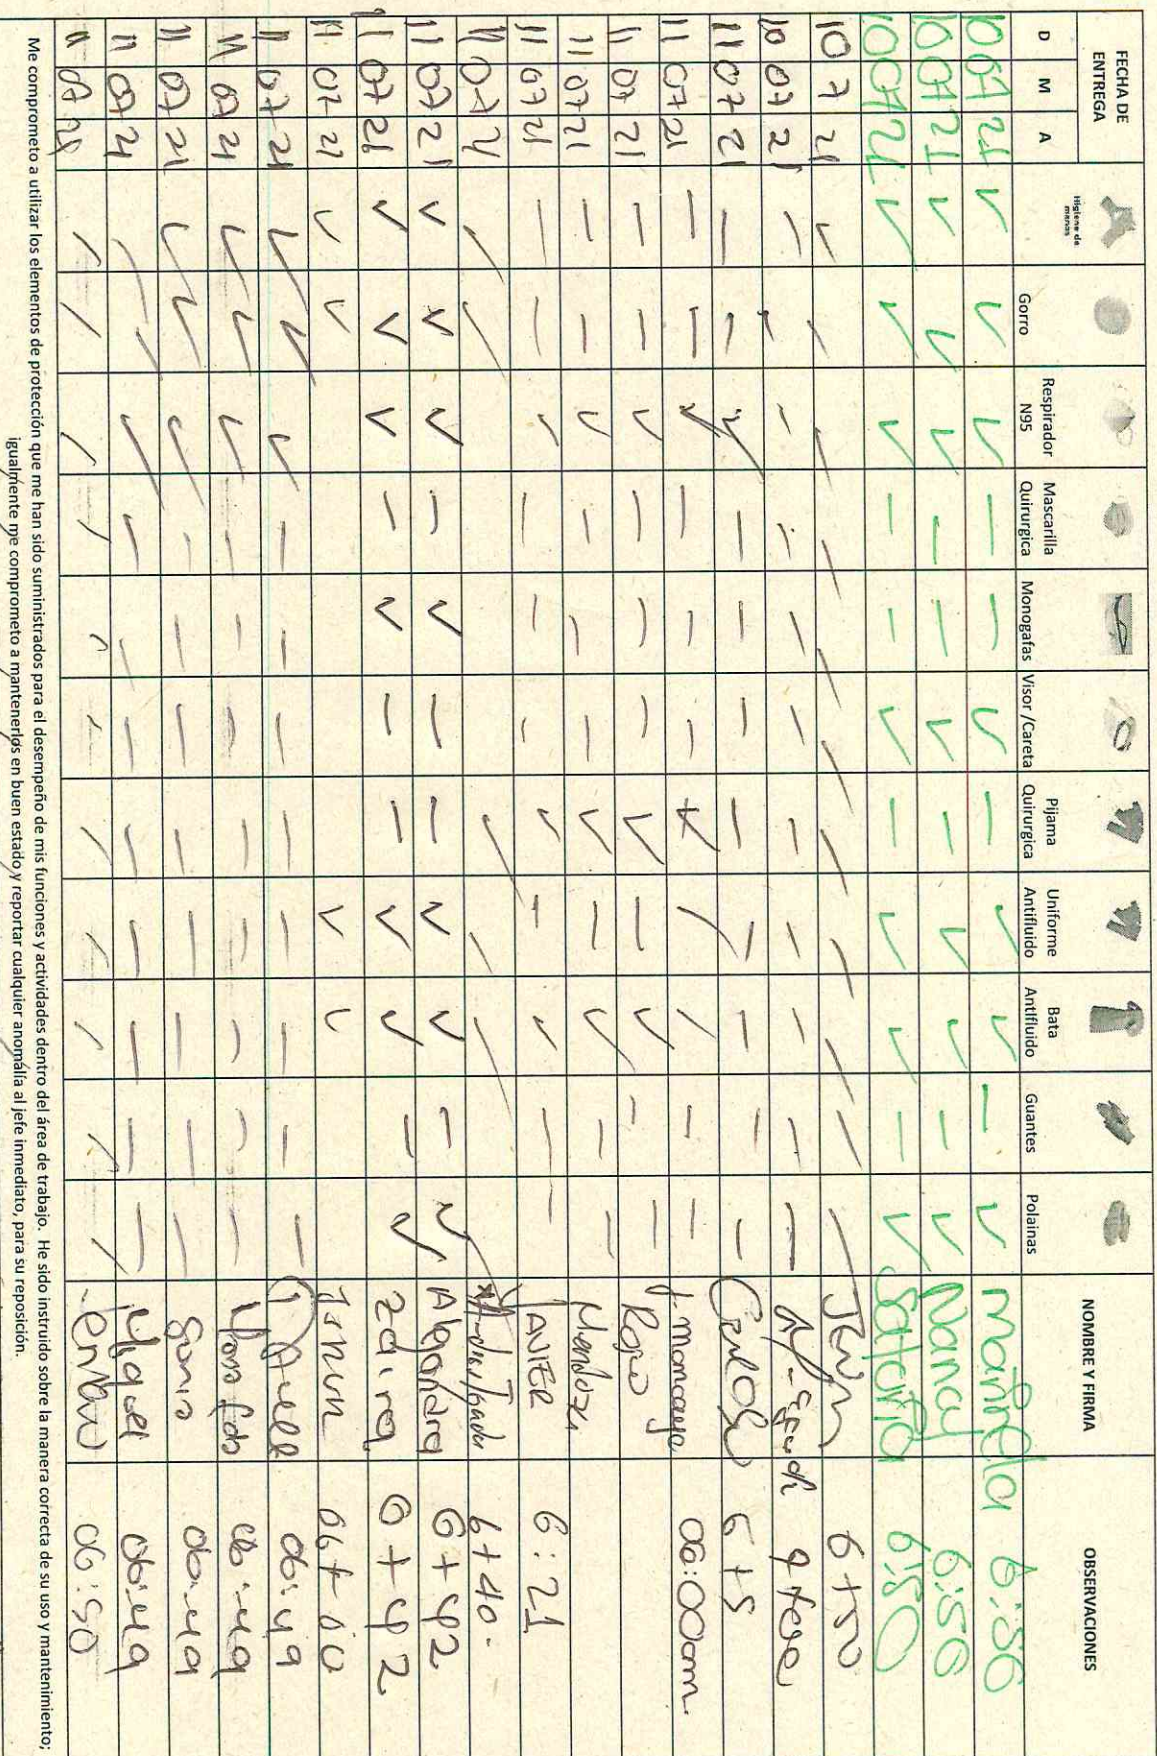 FECHA DE ENTREGA
D M A
Higiene de manos
Gorro
Respirador N95
Mascarilla Quirurgica
Monogafas
Visor /Careta
Pijama Quirurgica
Uniforme Antifluido
Bata Antifluido
Guantes
Polainas
NOMBRE Y FIRMA
OBSERVACIONES
10 07 21 ✓ ✓ ✓ — — ✓ — ✓ ✓ — ✓ 6:56
10 07 21 ✓ ✓ ✓ — — ✓ — ✓ ✓ — ✓ Nancy 6:56
10 07 21 ✓ ✓ ✓ — — ✓ — ✓ ✓ — ✓ 6:50
10 7 21 6+50
10 07 21
11 07 21 Carlos 6+5
11 07 21 06:00am.
11 07 21 Rojas
11 07 21 Mendoza
11 07 21 JAVIER 6:21
11 07 21 6+40.
11 07 21 ✓ ✓ ✓ — ✓ — — ✓ ✓ — ✓ Alejandra 6+42
11 07 21 ✓ ✓ ✓ — ✓ — — ✓ ✓ — ✓ Zaira 6+42
11 07 21 ✓ ✓ ✓ ✓
11 07 21 06:49
11 07 21 06:49
11 07 21 Sonia 06:49
11 07 21 Miguel 06:49
11 07 21 06:50
Me comprometo a utilizar los elementos de protección que me han sido suministrados para el desempeño de mis funciones y actividades dentro del área de trabajo. He sido instruido sobre la manera correcta de su uso y mantenimiento;
igualmente me comprometo a mantenerlos en buen estado y reportar cualquier anomália al jefe inmediato, para su reposición.